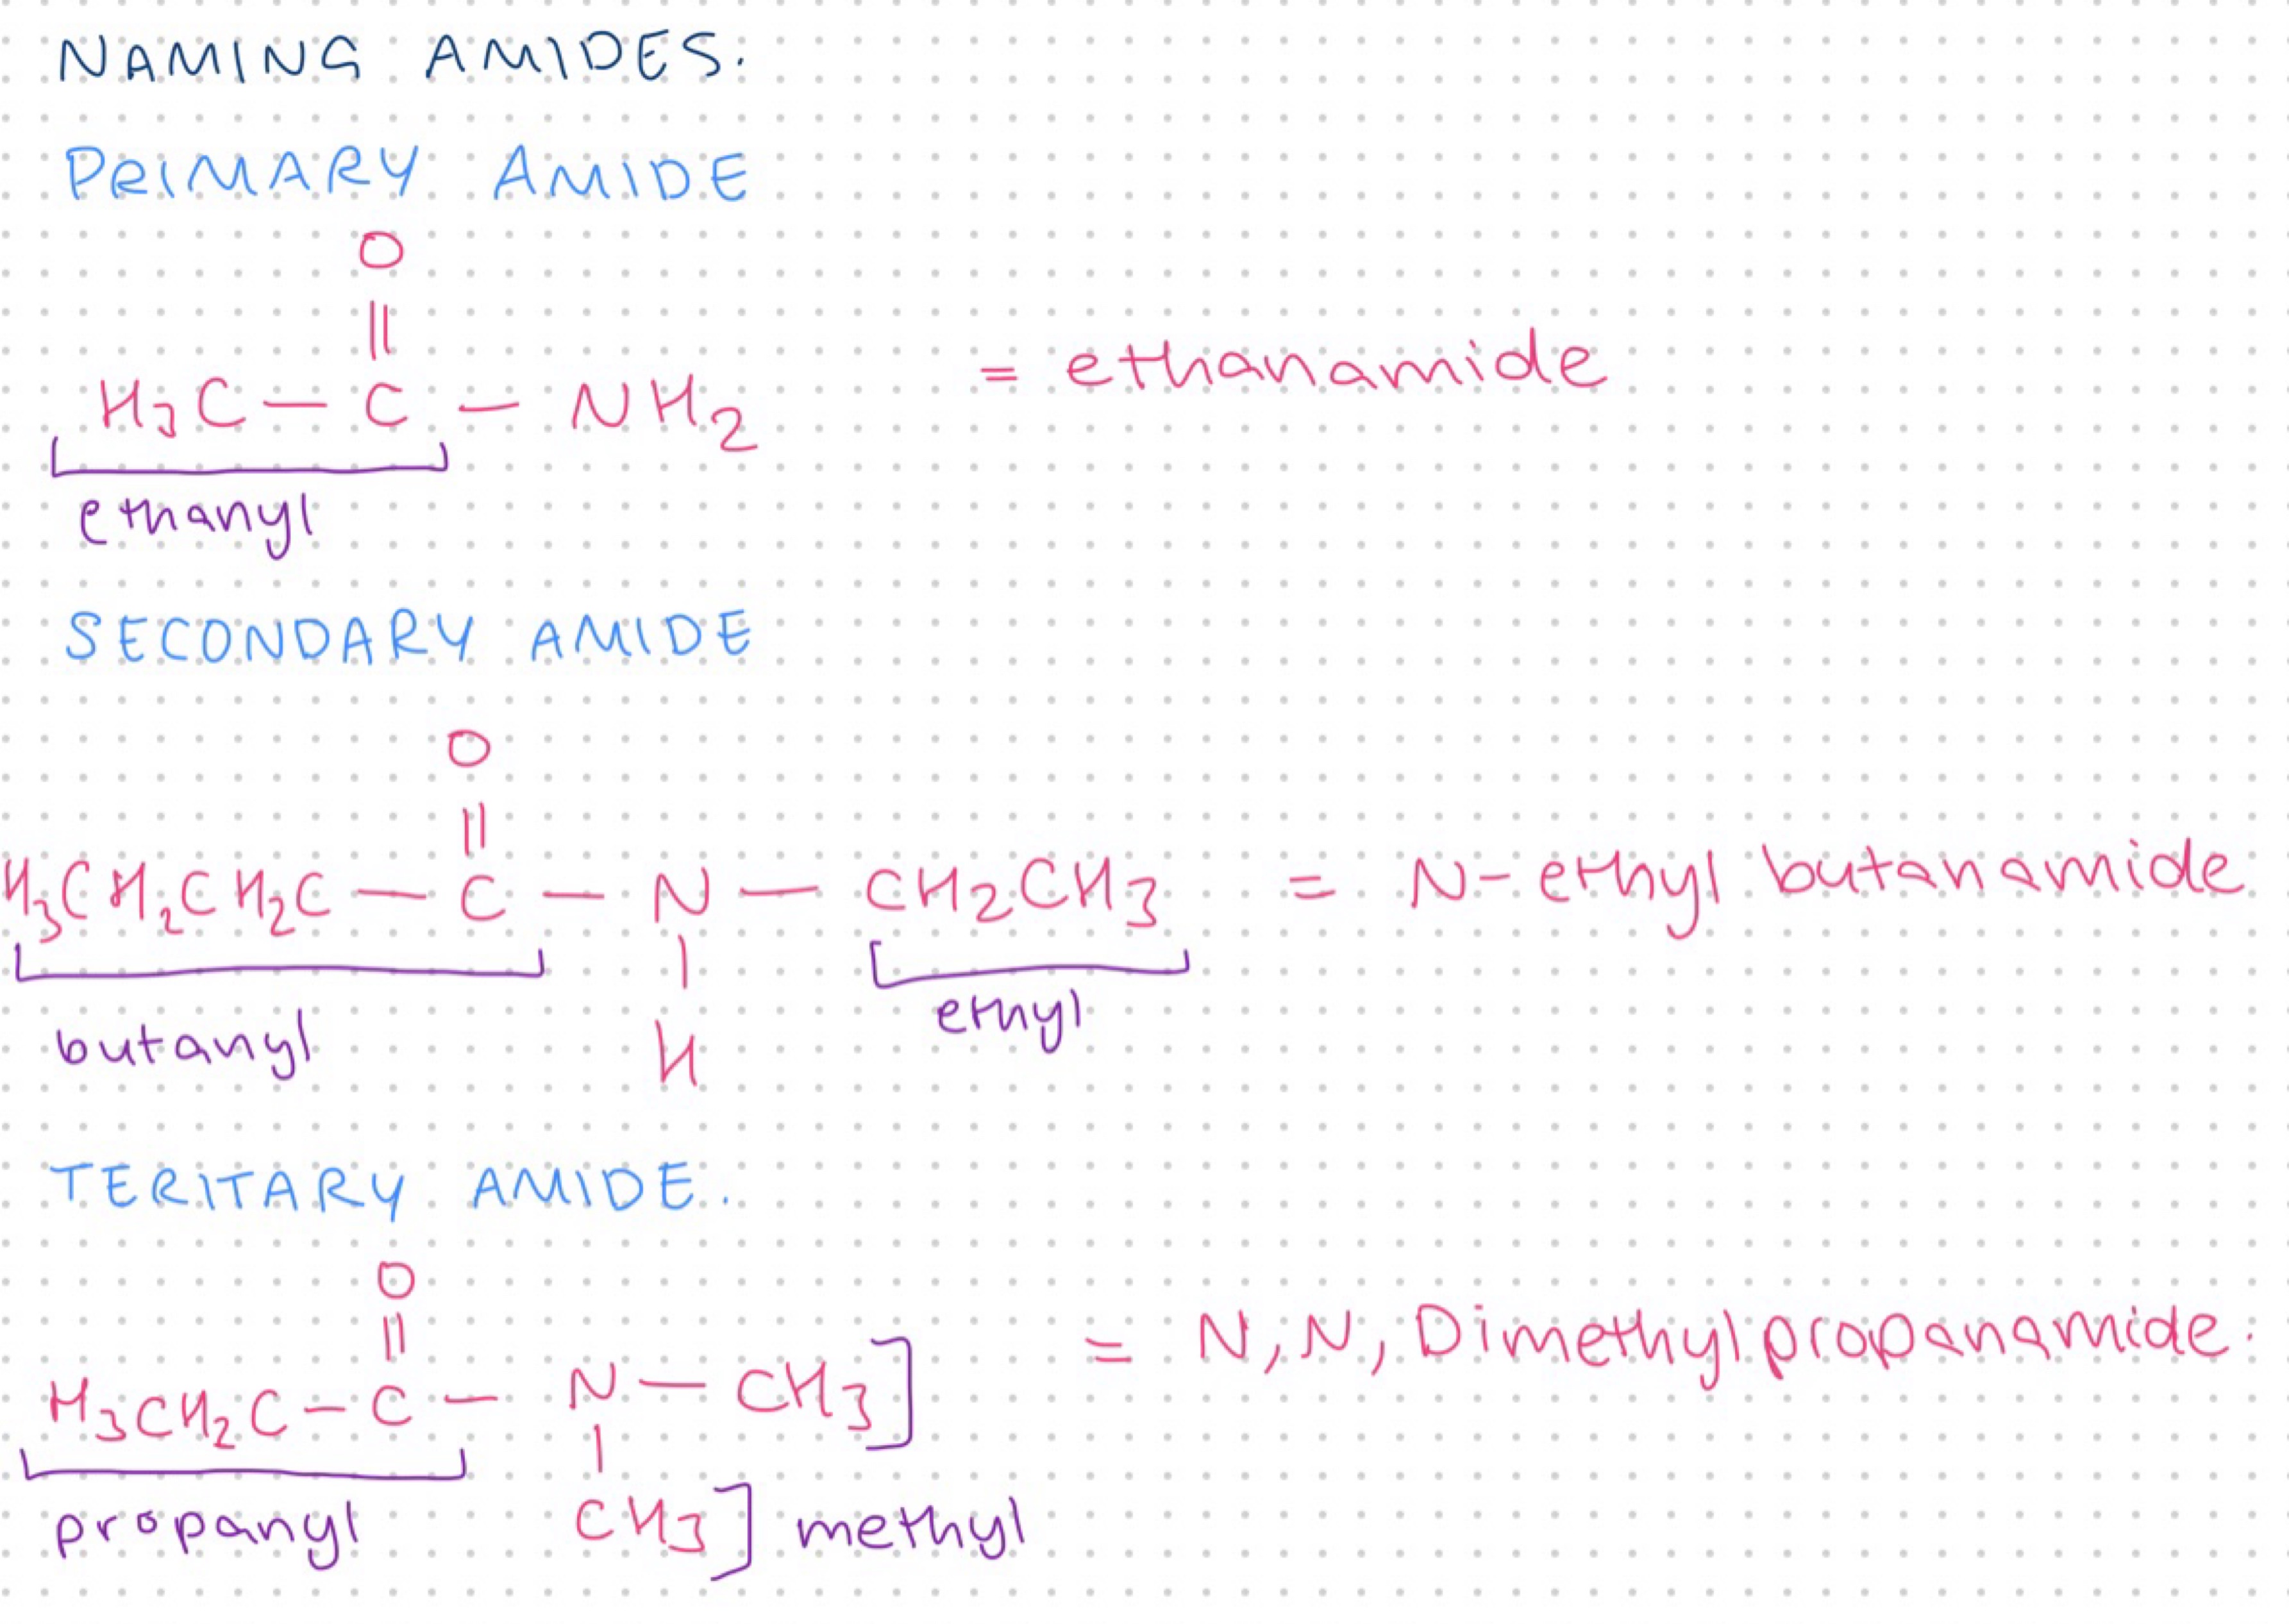 NAMING AMIDES.
PRIMARY AMIDE
O
||
H3C — C — NH2 = ethanamide
ethanyl
SECONDARY AMIDE
O
||
H3CH2CH2C — C — N — CH2CH3 = N-ethyl butanamide
|
ethyl
butanyl H
TERITARY AMIDE.
O
||
H3CH2C — C — N — CH3] = N,N, Dimethylpropanamide.
|
propanyl CH3] methyl